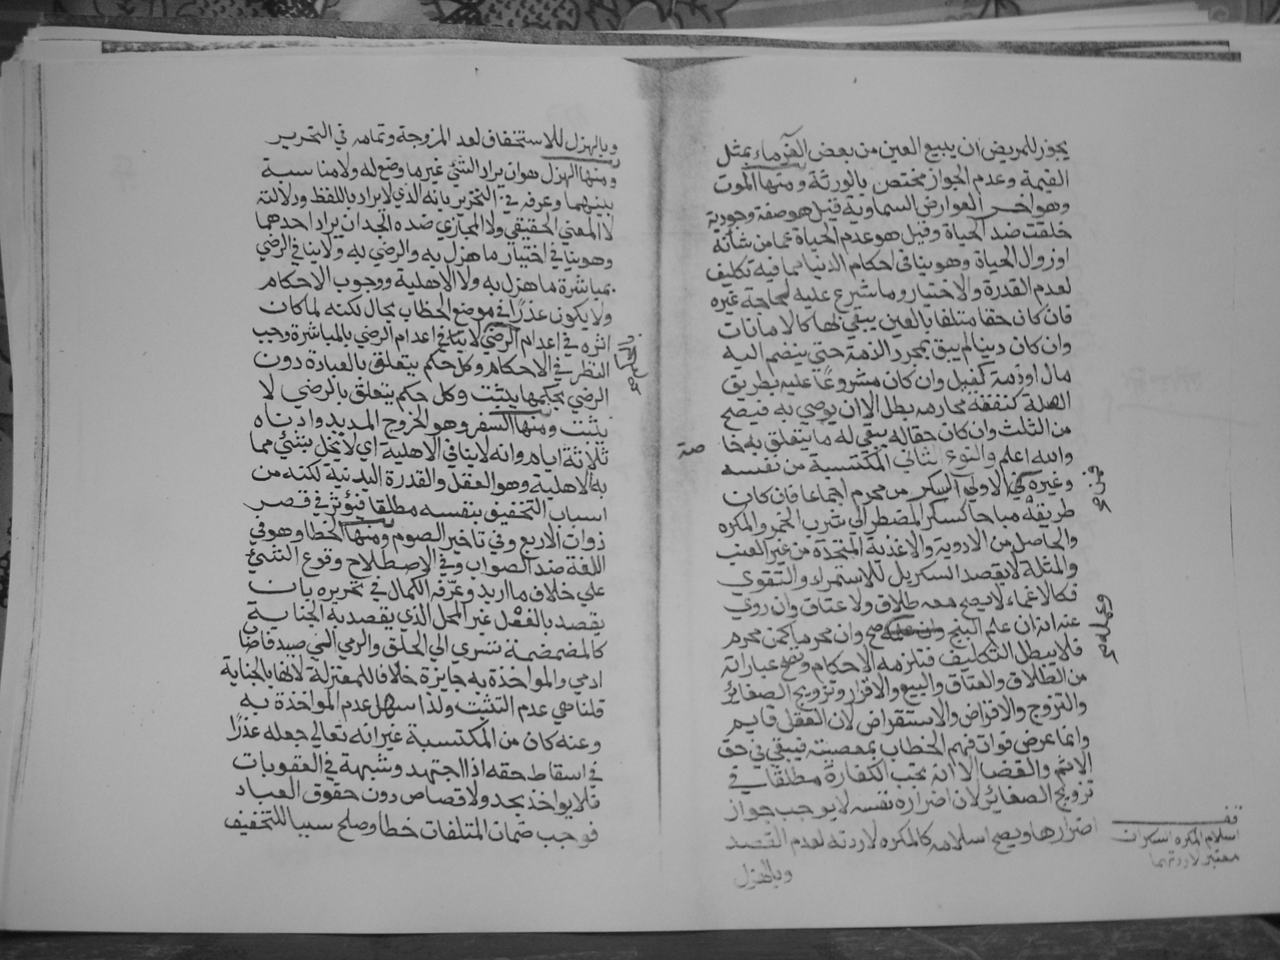 يجوز للمريض ان يبيع العين من بعض الغرماء بمثل
القيمة وعدم الجواز مختص بالورثة ومنها الموت
وهو اخر العوارض السماوية قيل هو صفة وجودية
خلقت ضد الحياة وقيل هو عدم الحياة عما من شانه
اوزوال الحياة وهو ينافى احكام الدنيا مما فيه تكليف
لعدم القدرة والاختيار وما شرع عليه لحاجة غيره
فان كان حقا متلفا بالعين يبقي ببقائها كالامانات
وان كان دينا لم يبق بمجرد الذمة حتي ينضم اليه
مال اوذمة كفيل وان كان مشروعا عليه بطريق
الصلة كنفقة محارمه بطل الا ان يوصي به فيصح
من الثلث وان كان حقا له يبقي له ما يتعلق به حا
والله اعلم والنوع الثاني المكتسبة من نفسه
وغيره الاولي السكر من محرم اجماعا فان كان
طريقه مباحا كسكر المضطر الي شرب الخمر والمكره
والحاصل من الادوية والاغذية المتخذة من غير العنب
والمثلة لا يقصد السكر بل للاستمراء والتقوي
فكالاغماء لا يصح معه طلاق ولا عتاق وان روي
عنه انه ان علم البنج صح وان محرما كمن محرم
فلا يبطل التكليف فتلزمه الاحكام وتصح عباراته
من الطلاق والعتاق والبيع والاقرار وتزويج الصغائر
والتزوج والاقراض والاستقراض لان العقل قايم
وانما عرض فوات فهم الخطاب بمعصيته فيبقي في حق
الاثم والقضا الا انه يجب الكفارة مطلقا في
تزويج الصغائر لان اضراره نفسه لا يوجب جواز
اضرارها ويصح اسلامه كالمكره لا ردته لعدم القصد
وبالهزل
صة
قف
اسلام المكره السكران
معتبر لا ردتهما
وبالهزل للاستخفاف لعد المزوجة وتمامه في التحرير
ومنها الهزل هو ان يراد الشئ غير ما وضع له ولا مناسبة
بينهما وعرفه في التحرير بانه الذي لا يراد باللفظ ودلالته
لا المعني الحقيقي ولا المجازي ضده الجد ان يراد احدهما
وهو ينافي اختيار ما هزل به والرضي به ولا ينافي الرضي
بمباشرة ما هزل به ولا الاهلية ووجوب الاحكام
ولا يكون عذرا في موضع الخطاب بحال لكنه لما كان
اثره في اعدام الرضي لا في اعدام الرضي بالمباشرة وجب
النظر في الاحكام وكل حكم يتعلق بالعبادة دون
الرضي بحكمها يثبت وكل حكم يتعلق بالرضي لا
يثبت ومنها السفر وهو الخروج المديد وادناه
ثلاثة ايام وانه لا ينافي الاهلية اي لا يخل بشئ مما
به الاهلية وهو العقل والقدرة البدنية لكنه من
اسباب التخفيف بنفسه مطلقا فيؤثر في قصر
ذوات الاربع وفي تاخير الصوم ومنها الخطا وهو في
اللغة ضد الصواب وفي الاصطلاح وقوع الشئ
علي خلاف ما اريد وعرفه الكمال في تحريره بان
يقصد بالفعل غير المحل الذي يقصد به الجناية
كالمضمضة تسري الي الحلق والرمي الي صيد فاصاب
ادمي والمواخذة به جايزة خلافا للمعتزلة لانها بالجناية
قلنا هي عدم التثبت ولذا سهل عدم المواخذة به
وعنه كان من المكتسبة غير انه تعالي جعله عذرا
في اسقاط حقه اذا اجتهد وشبهة في العقوبات
فلا يواخذ بحد ولا قصاص دون حقوق العباد
فوجب ضمان المتلفات خطا وصلح سببا للتخفيف